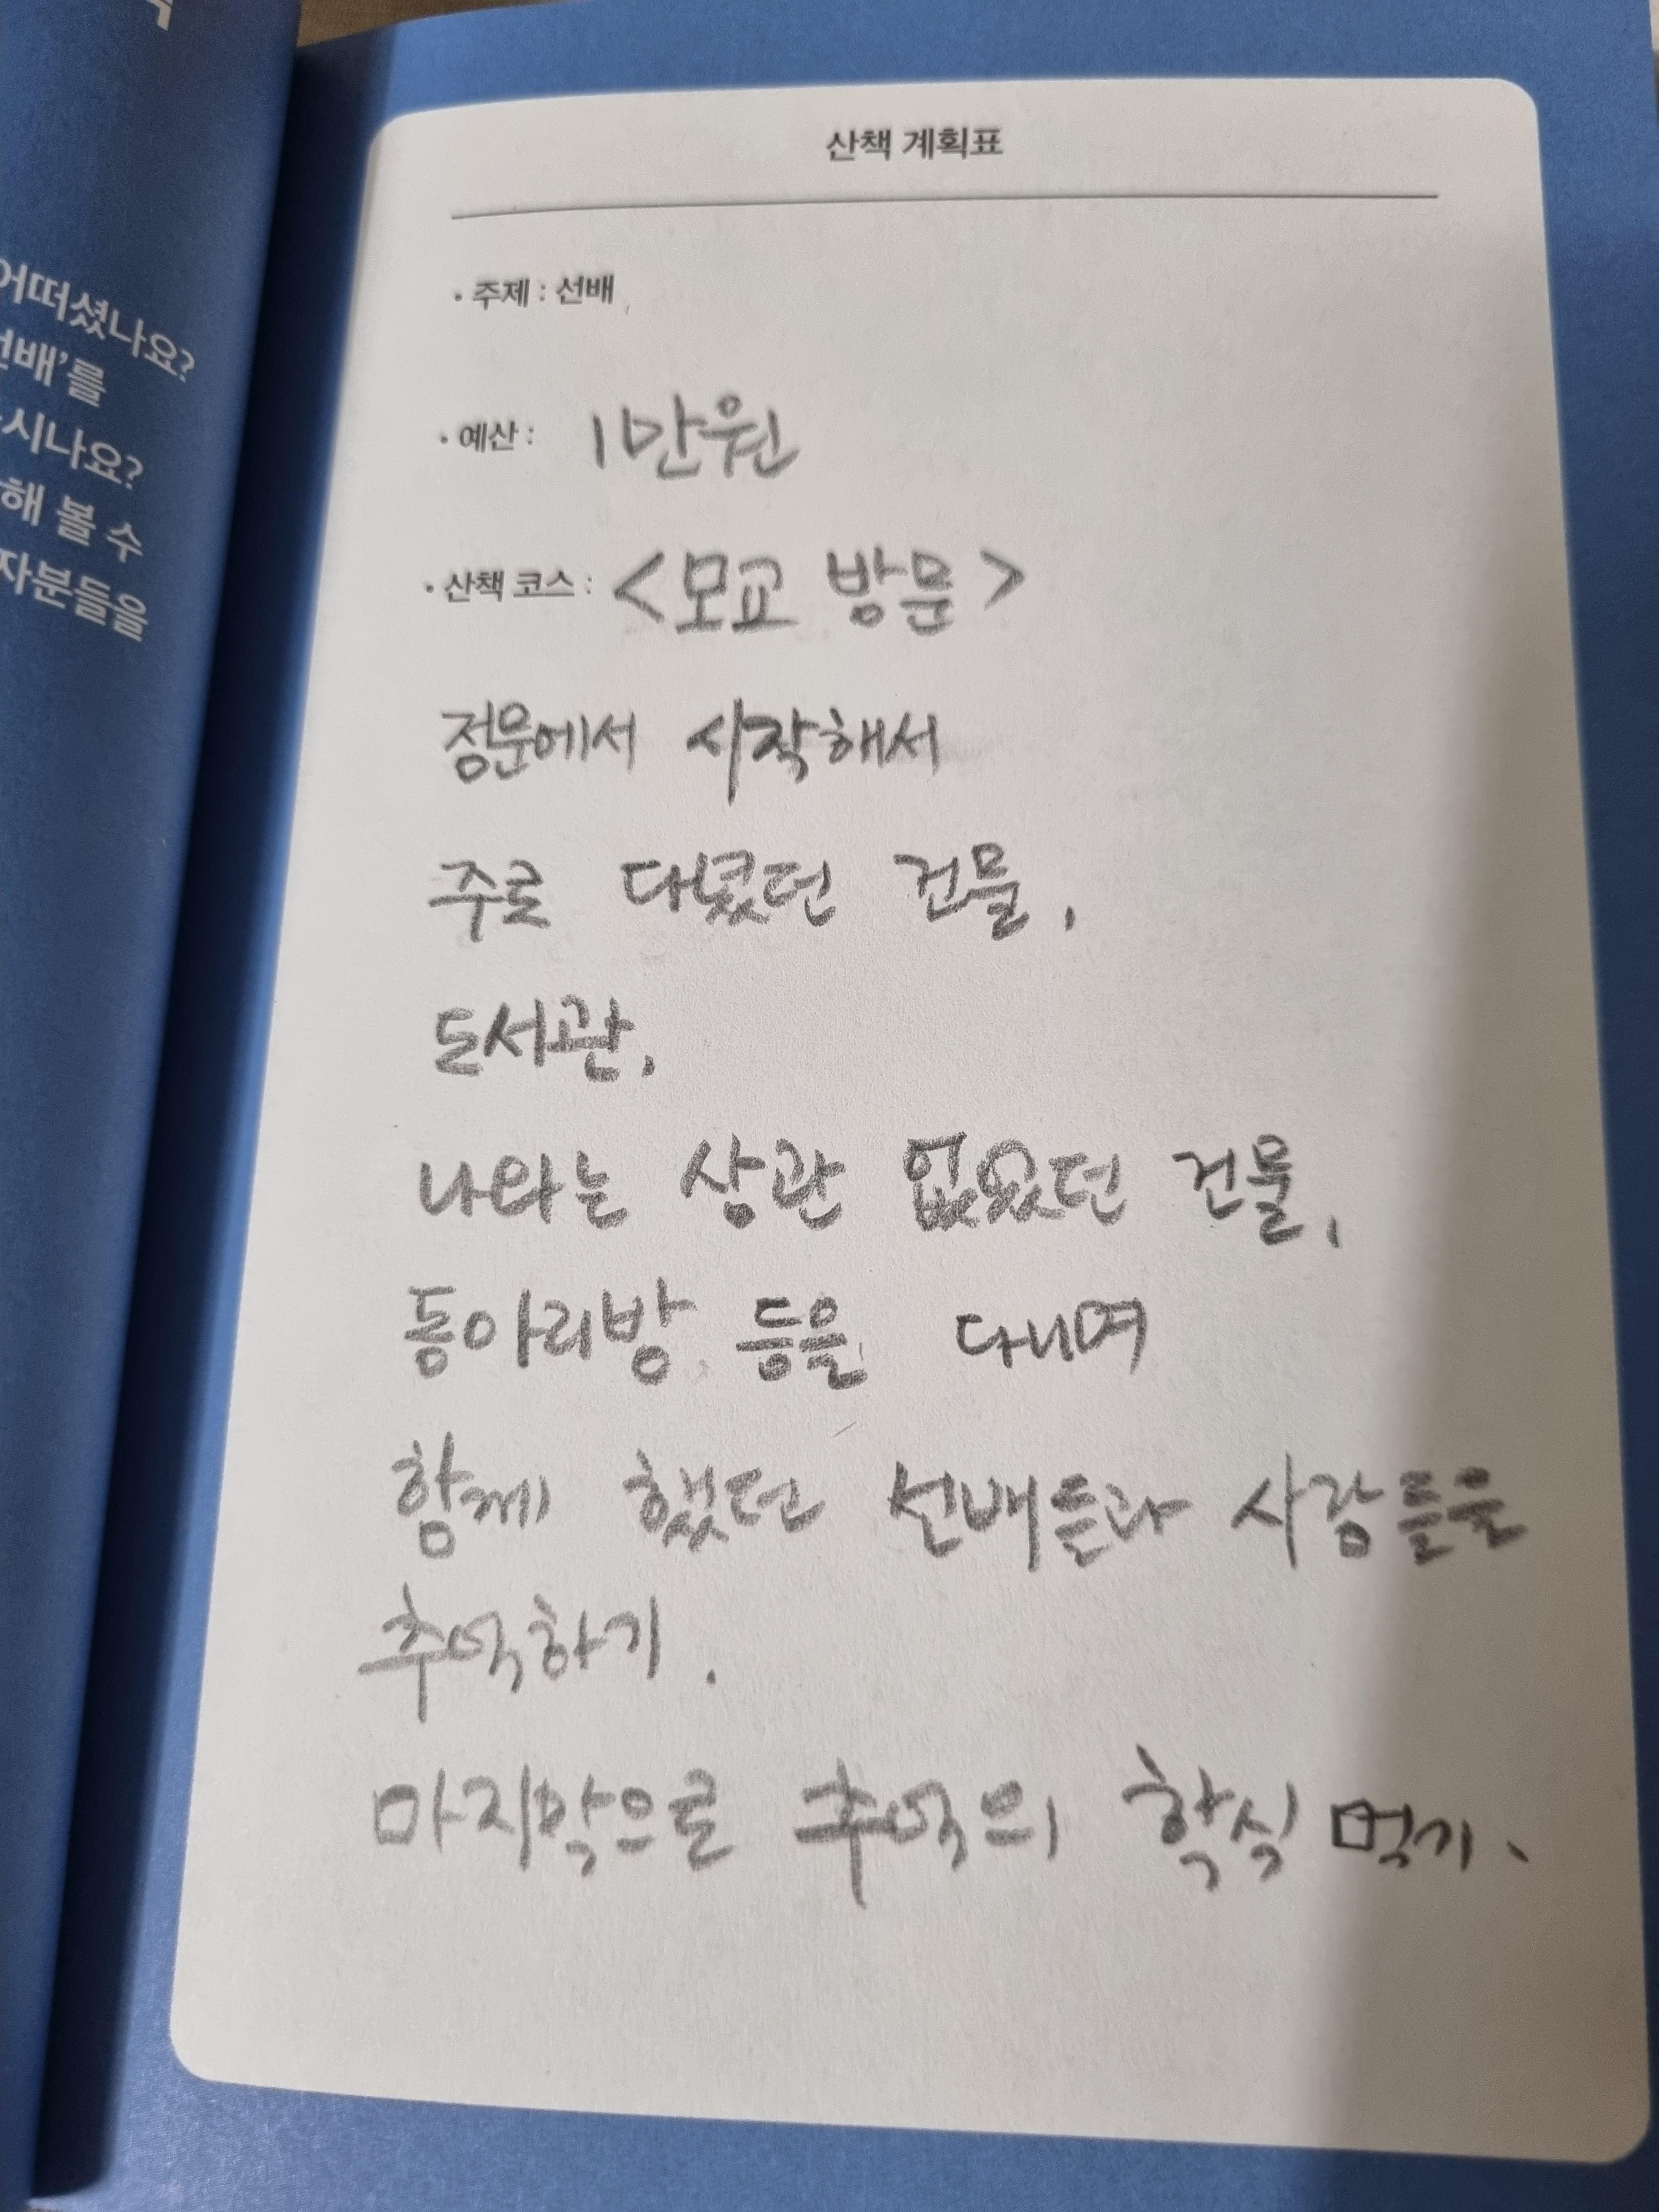 어떠셨나요?
선배'를
시나요?
해 볼 수
자분들을
산책 계획표
• 주제 : 선배
• 예산 : 1만원
• 산책 코스 : <모교 방문>
정문에서 시작해서
주로 다녔던 건물,
도서관,
나와는 상관 없었던 건물,
동아리방 등을 다니며
함께 했던 선배들과 사람들을
추억하기.
마지막으로 추억의 학식 먹기.